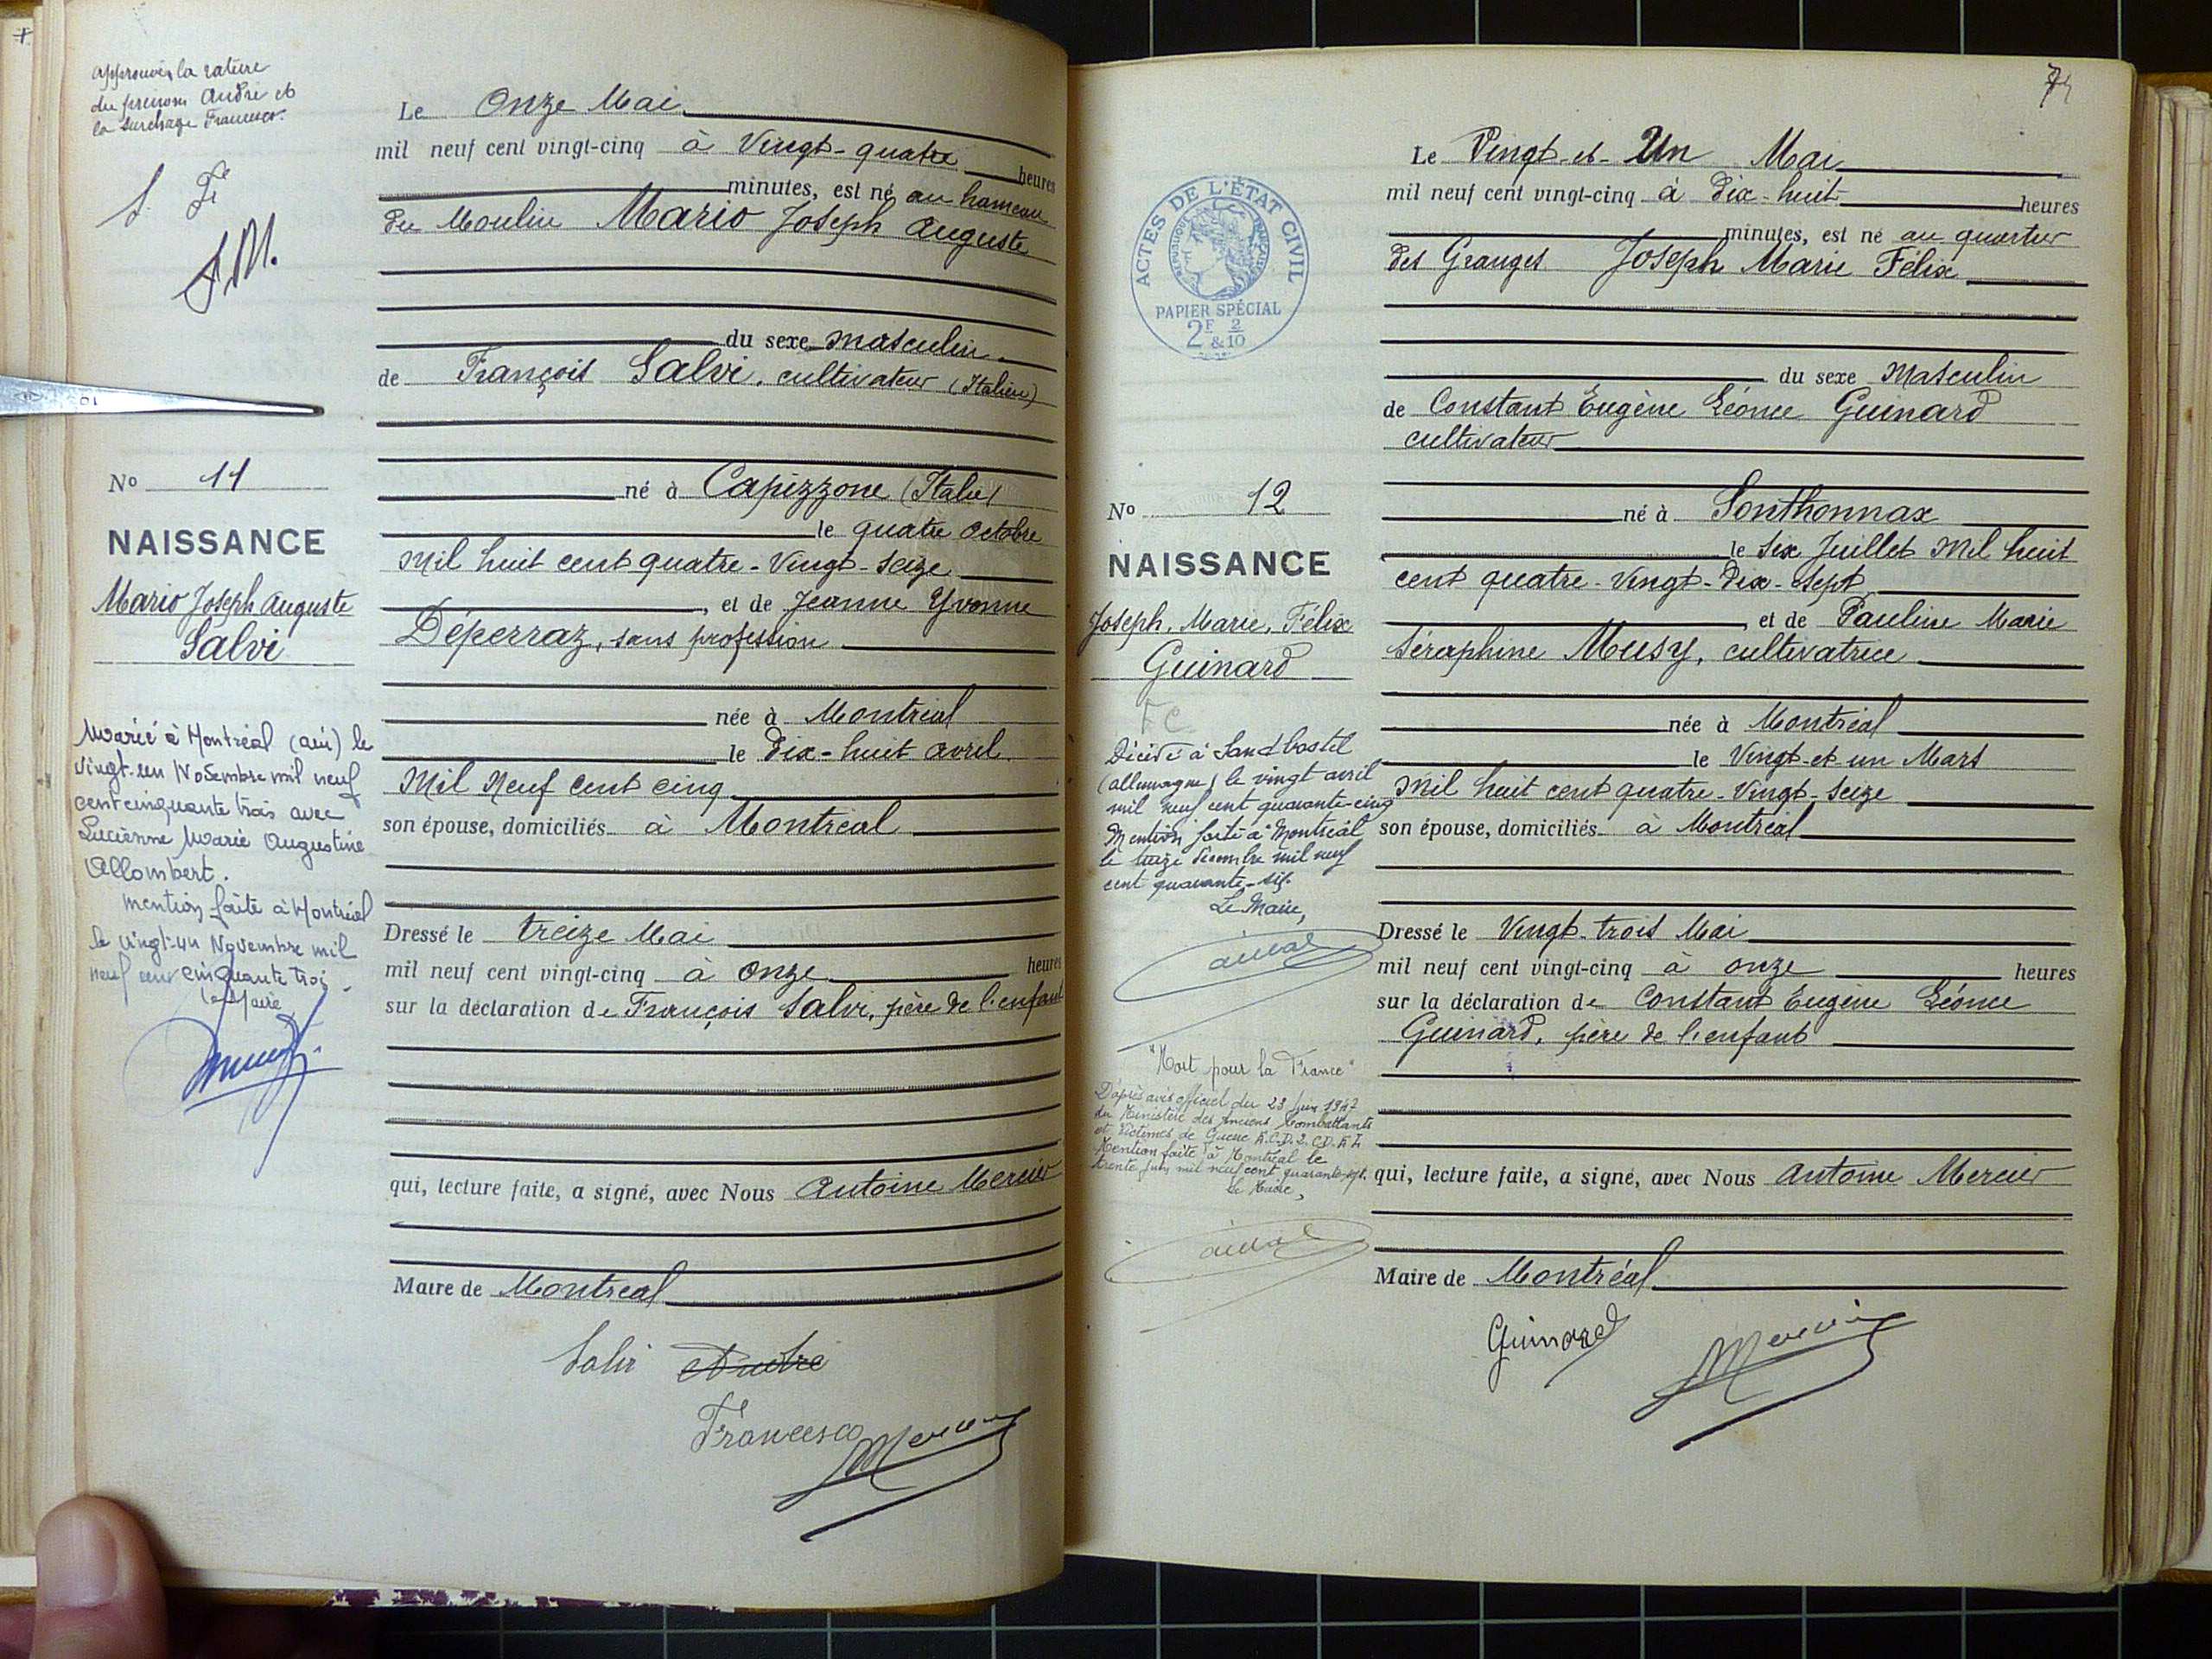 approuvé la rature
du prénom André et
la surchage Francesco.
S. F.
A.M.
No 11
NAISSANCE
Mario Joseph Auguste
Salvi
Marié à Montréal (ain) le
vingt-un Novembre mil neuf
cent cinquante trois avec
Lucienne Marie Augustine
Allombert.
mention faite à Montréal
le vingt-un Novembre mil
neuf cent cinquante trois
le Maire
Le Onze Mai
mil neuf cent vingt-cinq à Vingt-quatre heures
minutes, est né au hameau
du Moulin Mario Joseph Auguste
du sexe masculin
de François Salvi, cultivateur (Italien)
né à Capizzone (Italie)
le quatre Octobre
Mil huit cent quatre-Vingt-seize
, et de Jeanne Yvonne
Déperraz, sans profession
née à Montréal
le Dix-huit avril
Mil Neuf Cent cinq
son épouse, domiciliés à Montréal
Dressé le treize Mai
mil neuf cent vingt-cinq à onze heures
sur la déclaration de François Salvi, père de l'enfant
qui, lecture faite, a signé, avec Nous Antoine Mercier
Maire de Montréal
Salvi André
Francesco Mercier
74
ACTES DE L'ÉTAT CIVIL
RÉPUBLIQUE FRANÇAISE
PAPIER SPÉCIAL
2F & 2/10
No 12
NAISSANCE
Joseph, Marie, Félix
Guinard
FC
Décédé à Sandbostel
(allemagne) le vingt avril
mil neuf cent quarante-cinq
Mention faite à Montréal
le treize décembre mil neuf
cent quarante-six.
Le Maire,
"Mort pour la France"
D'après avis officiel du 23 juin 1947
du Ministère des Anciens Combattants
et Victimes de Guerre
Mention faite à Montréal le
trente juin mil neuf cent quarante-sept.
Le Maire,
Le Vingt-et-Un Mai
mil neuf cent vingt-cinq à Dix-huit heures
minutes, est né au quartier
des Granges Joseph Marie Félix
du sexe Masculin
de Constant Eugène Léonce Guinard
cultivateur
né à Sonthonnax
le six Juillet Mil huit
cent quatre-Vingt-Dix-sept
, et de Pauline Marie
Séraphine Musy, cultivatrice
née à Montréal
le Vingt-et-un Mars
Mil huit cent quatre-Vingt-seize
son épouse, domiciliés à Montréal
Dressé le Vingt-trois Mai
mil neuf cent vingt-cinq à onze heures
sur la déclaration de Constant Eugène Léonce
Guinard, père de l'enfant
qui, lecture faite, a signé, avec Nous Antoine Mercier
Maire de Montréal
Guinard Mercier